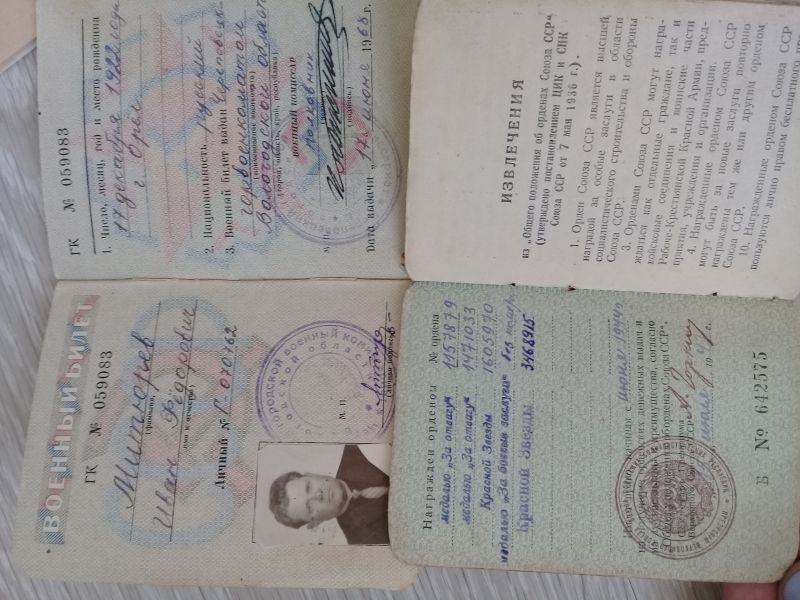 ВОЕННЫЙ БИЛЕТ
ГК № 059083
Митюрев
(фамилия,
Иван Федорович
имя и отчество)
Личный № Г-070762
М. П.
(личная подпись)
ГК № 059083
1. Число, месяц, год и место рождения
17 декабря 1922 года
г. Орёл
2. Национальность русский
3. Военный билет выдан Череповецким
горвоенкоматом
(наименование военкомата)
Вологодской области
(город, область, край, республика)
ВОЕННЫЙ КОМИССАР
полковник
(подпись)
М. П.
Дата выдачи „17“ июня 1968 г.
ИЗВЛЕЧЕНИЯ
из „Общего положения об орденах Союза ССР“,
(утверждено постановлением ЦИК и СНК
Союза ССР от 7 мая 1936 г.).
1. Орден Союза ССР является высшей
наградой за особые заслуги в области
социалистического строительства и обороны
Союза ССР.
3. Орденами Союза ССР могут награ-
ждаться как отдельные граждане, так и
войсковые соединения и воинские части
Рабоче-Крестьянской Красной Армии, пред-
приятия, учреждения и организации.
4. Награжденные орденом Союза ССР
могут быть за новые заслуги повторно
награждены тем же или другим орденом
Союза ССР.
10. Награжденные орденом Союза ССР
пользуются лично правом бесплатного
Награжден орденом № ордена
медалью „За отвагу“ 1157879
медалью „За отвагу“ 1471033
Красной Звезды 1605970
медалью „За боевые заслуги“ без номера
Красной Звезды 3468915
июня 1944
денежных выдач и
преимущества, согласно
орденах Союза ССР“.
Б № 642575